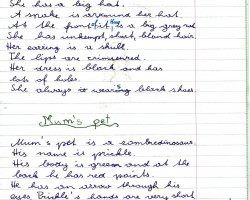 She has a big hat.
A snake is arround her hat.
At the front of it is a big grey rat
She has unkempt, short, blond hair
Her earring is a skull.
The lips are crimsoned.
Her dress is black and has
lots of holes.
She always is wearing black shoes
Mum's pet
Mum's pet is a
His name is prickle.
His body is green and at the
back he has red points.
He has an arrow through his
eyes Prickle's hands are very short